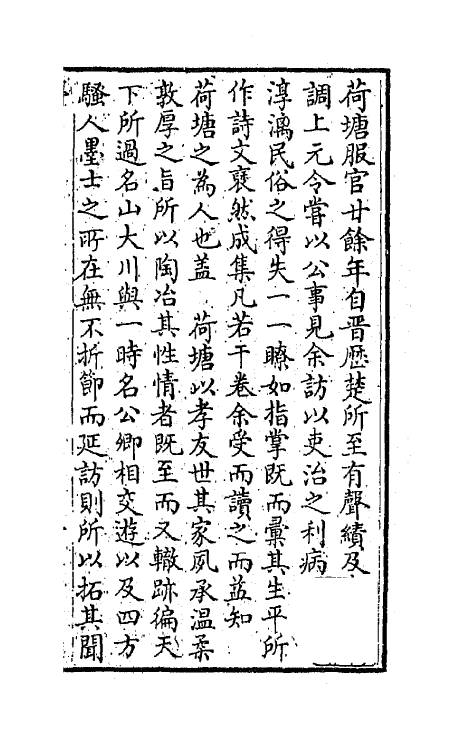 荷塘服官廿餘年自晋歷楚所至有聲績及
調上元令嘗以公事見余訪以吏治之利病
淳漓民俗之得失一一瞭如指掌既而彙其生平所
作詩文裒然成集凡若干卷余受而讀之而益知
荷塘之為人也蓋 荷塘以孝友世其家夙承溫柔
敦厚之旨所以陶冶其性情者既至而又轍跡徧天
下所過名山大川與一時名公卿相交遊以及四方
騷人墨士之所在無不折節而延訪則所以拓其聞